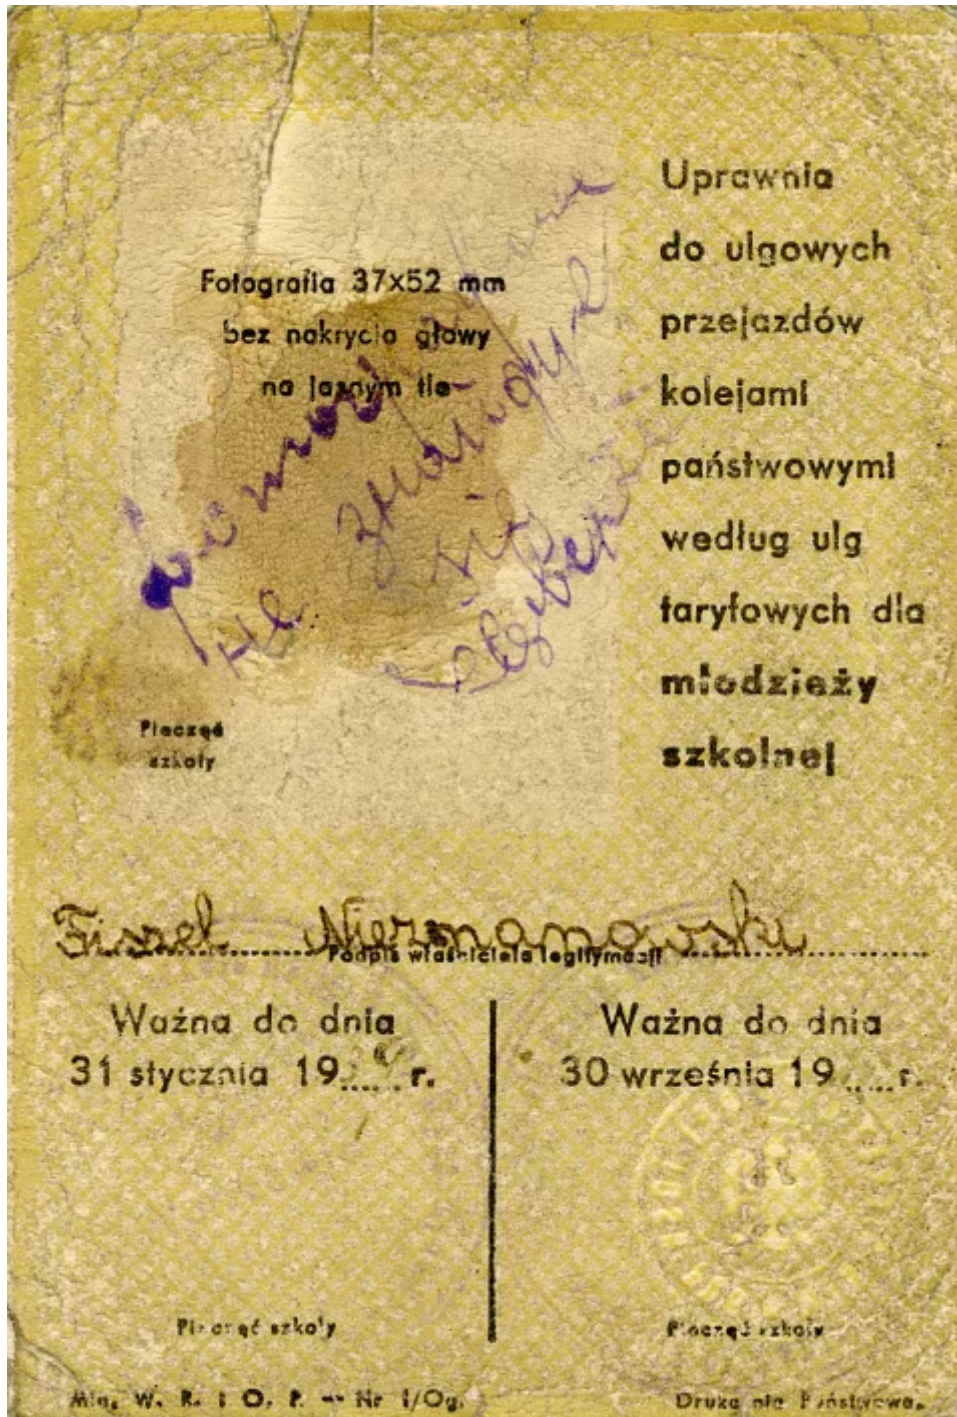 Fotografia 37x52 mm
bez nakrycia głowy
na jasnym tle
Uprawnia
do ulgowych
przejazdów
kolejami
państwowymi
według ulg
taryfowych dla
młodzieży
szkolnej
nie
się
Pieczęć
szkoły
Fiszel Niermanowski
Podpis właściciela legitymacji
Ważna do dnia
31 stycznia 19 r.
Pieczęć szkoły
Ważna do dnia
30 września 19 r.
Pieczęć szkoły
Min. W. R. i O. P. — Nr 1/Og.
Drukarnia Państwowa.